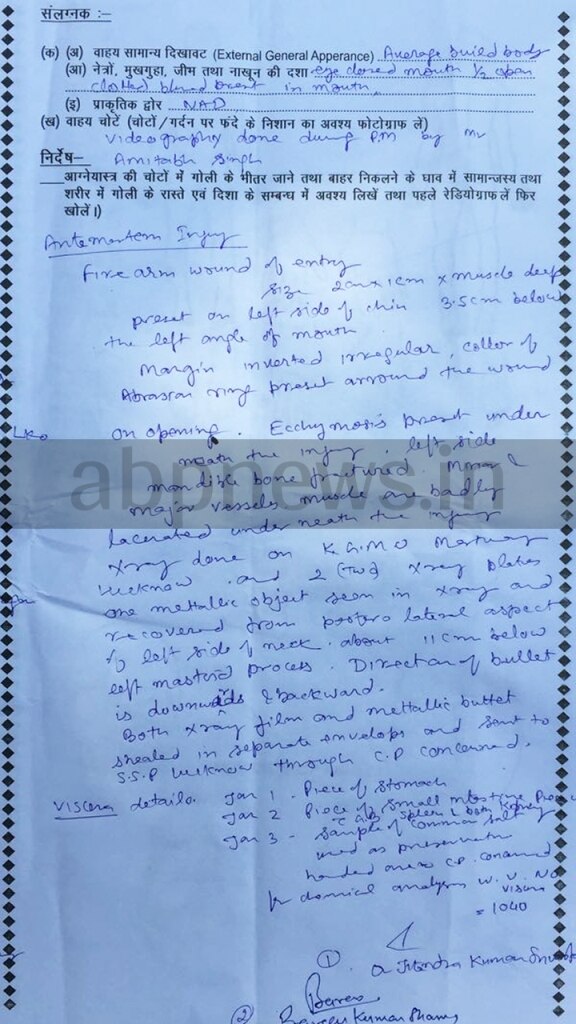 संलग्नक :–
(क) (अ) वाहय सामान्य दिखावट (External General Apperance) Average build body
(आ) नेत्रों, मुखगुहा, जीम तथा नाखून की दशा eye closed mouth ½ open
clotted blood present in mouth
(इ) प्राकृतिक द्वोर NAD
(ख) वाहय चोटें (चोटों/गर्दन पर फंदे के निशान का अवश्य फोटोग्राफ ले)
Videography done during P.M by Mr
Amitabh Singh
निर्देष–
आग्नेयास्त्र की चोटों में गोली के भीतर जाने तथा बाहर निकलने के घाव में सामान्जस्य तथा
शरीर में गोली के रास्ते एवं दिशा के सम्बन्ध में अवश्य लिखें तथा पहले रेडियोग्राफ लें फिर
खोलें।)
Antemortem Injury
Fire arm wound of entry
size 2cm x 1cm x muscle deep
preset on left side of chin 3.5cm below
the left angle of mouth
Margin inverted irregular, coller of
Abrasion ring preset arround the wound
on opening. Ecchymosis preset under
neath the injury. left side
mandible bone fractured.
major vessels muscle are badly
lacerated under neath the injury
Xray done on K.G.M.U Mortuary
lucknow and 2 (two) X ray plates
one mettallic object seen in xray and
recovered from postero lateral aspect
of left side of neck. about 11cm below
left mastoid process. Direction of bullet
is downwards & backward.
Both xray film and mettallic bullet
shealed in separate envelops and sent to
S.S.P lucknow through C.P concerned.
Viscera details. Jar 1. Piece of stomach
Jar 2 Piece of small intestine Piece
Spleen & both Kidney
Jar 3 - Sample of common salt
used as preservative
handed over C.P. concerned
for chemical analysis W. V. No
Viscera
= 1040
① Dr Jitendra Kumar
②
abpnews.in